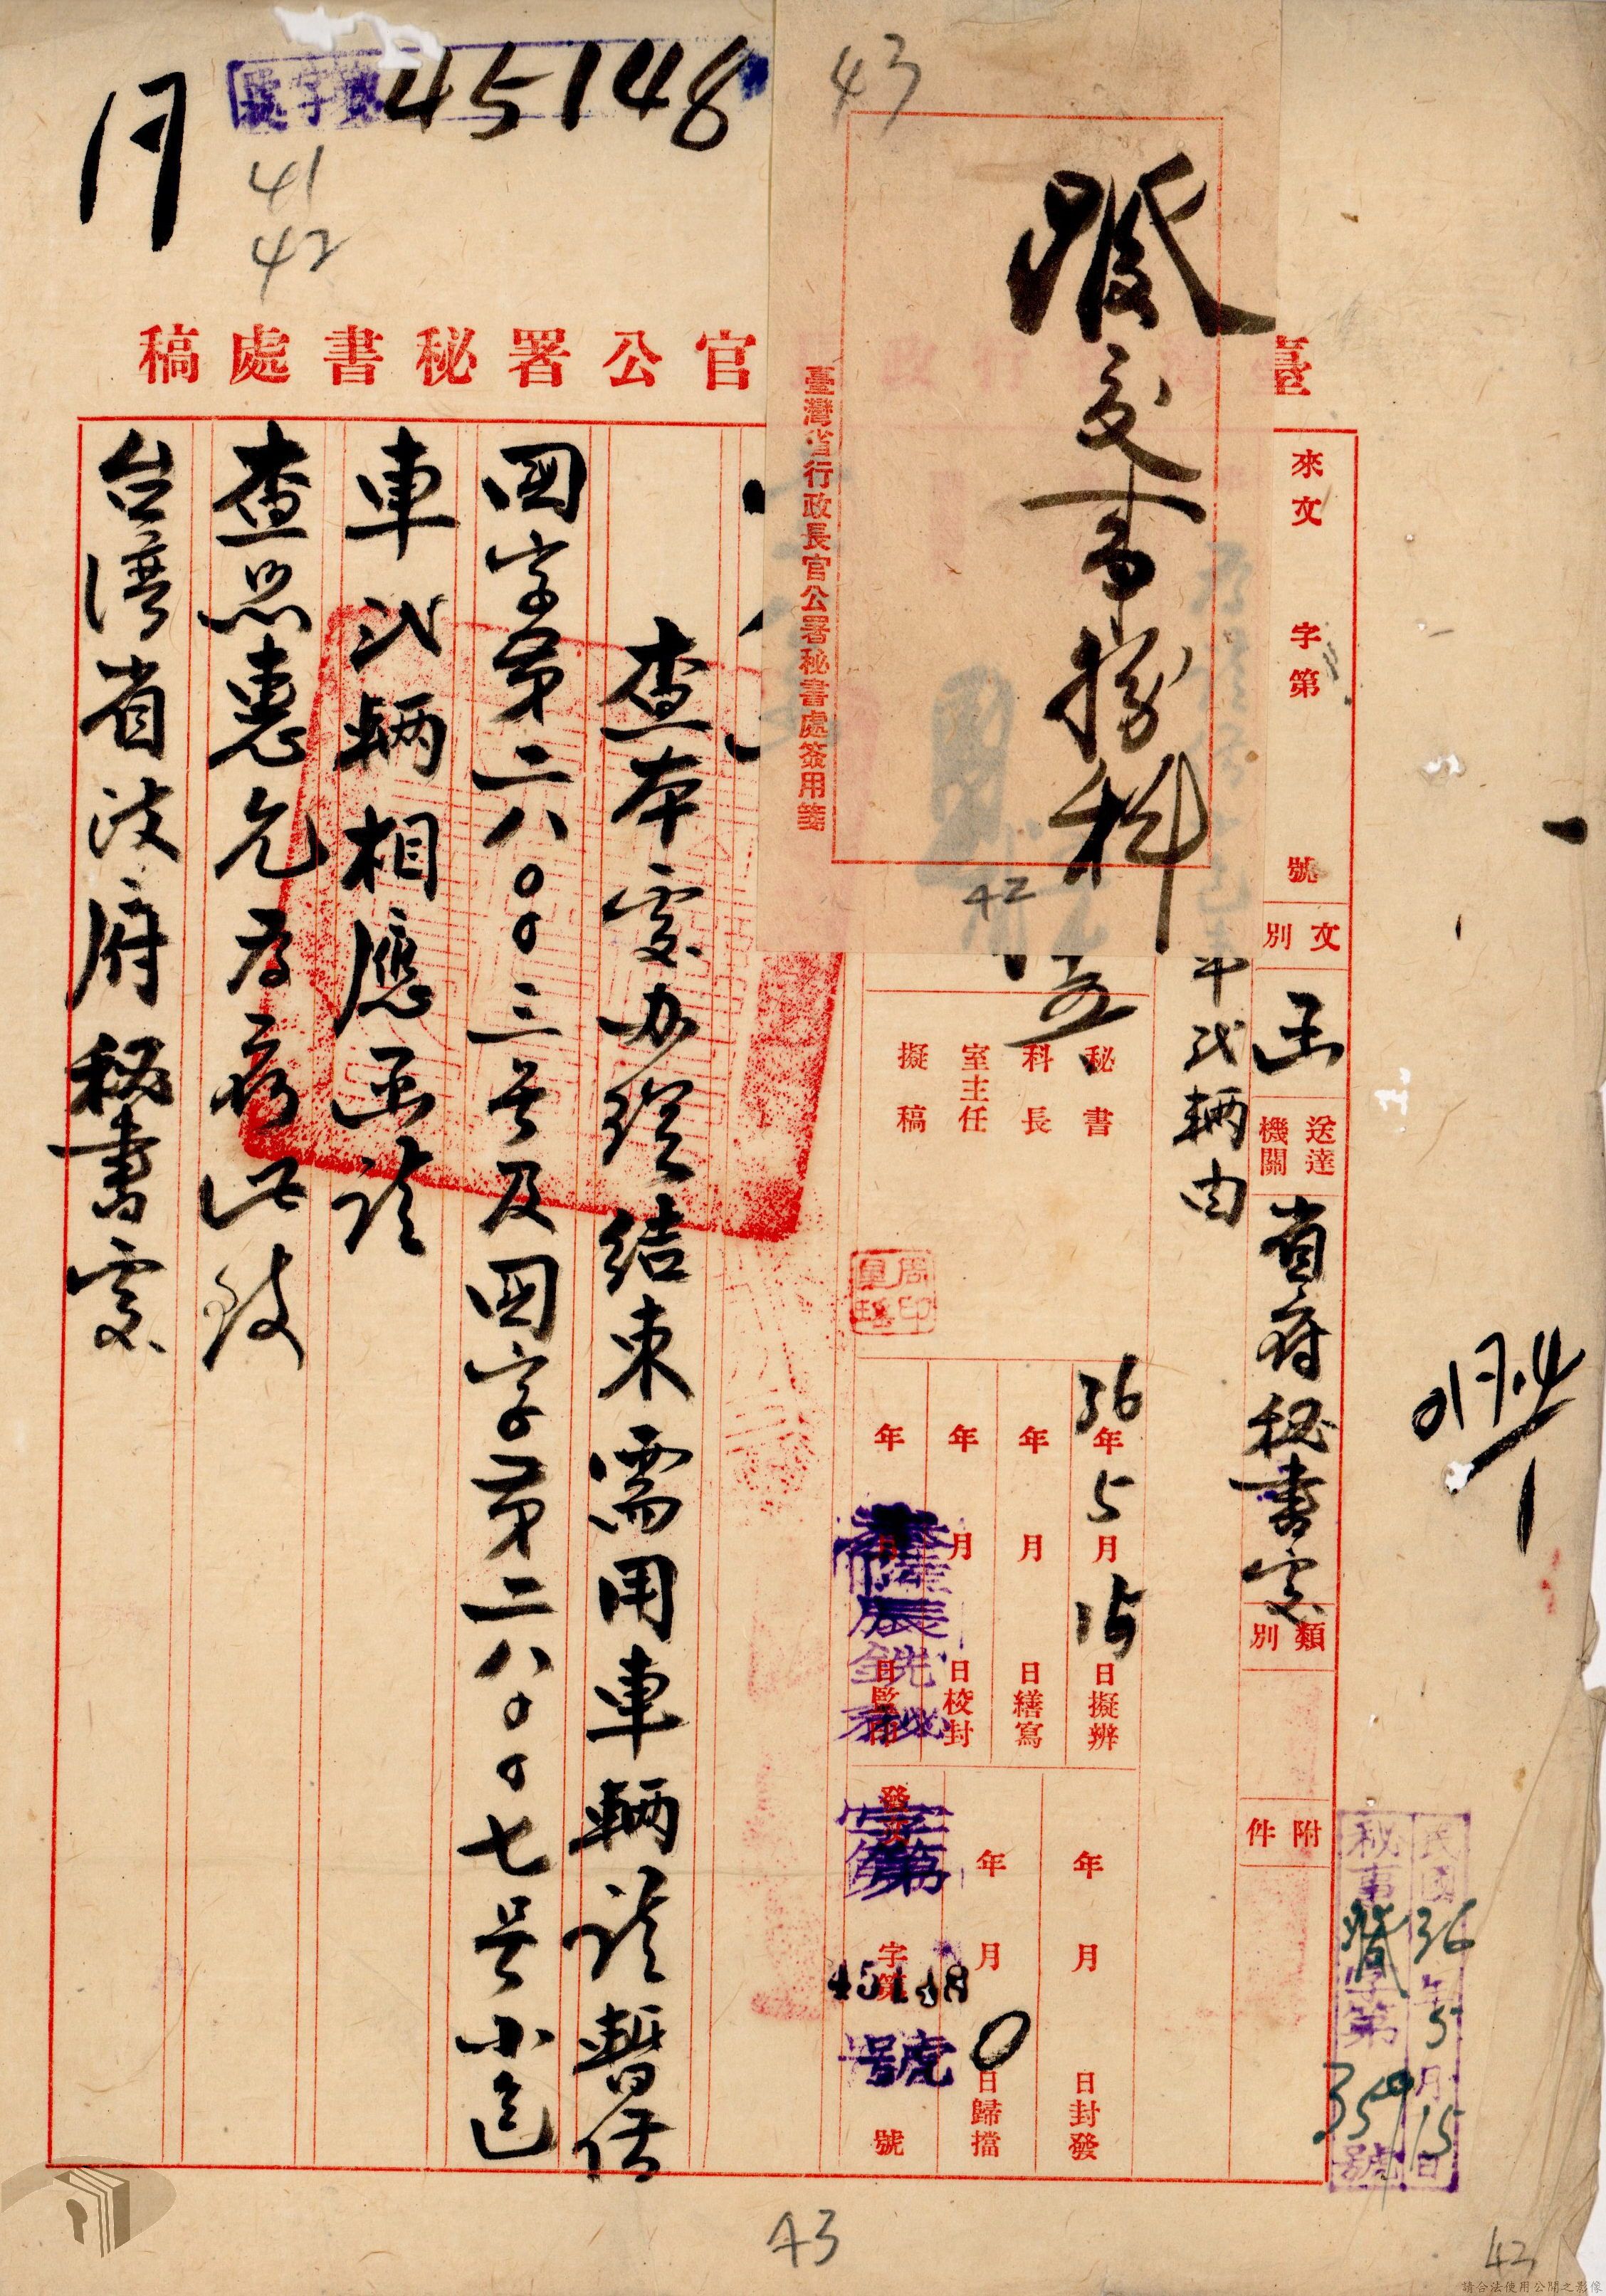 45148
41
42
43
交事務科
臺灣省行政長官公署秘書處簽用箋
42
臺
官公署秘書處稿
來文 字第 號
文別 函
送達機關 省府秘書處
類別
附件
車弍輛由
秘書
科長
室主任
擬稿
36年5月15日擬辦
年月日繕寫
年月日校封
年月日監印
年月日封發
年月日歸檔
發文 字第45148號
查本處办理結束需用車輛請暂借
国字第二八〇〇三号及国字第二八〇〇七号小包
車弍輛相應函請
查照惠允為荷此致
台湾省政府秘書處
民國36年5月15日
秘事 字第359號
43
43
請合法使用公開之影像